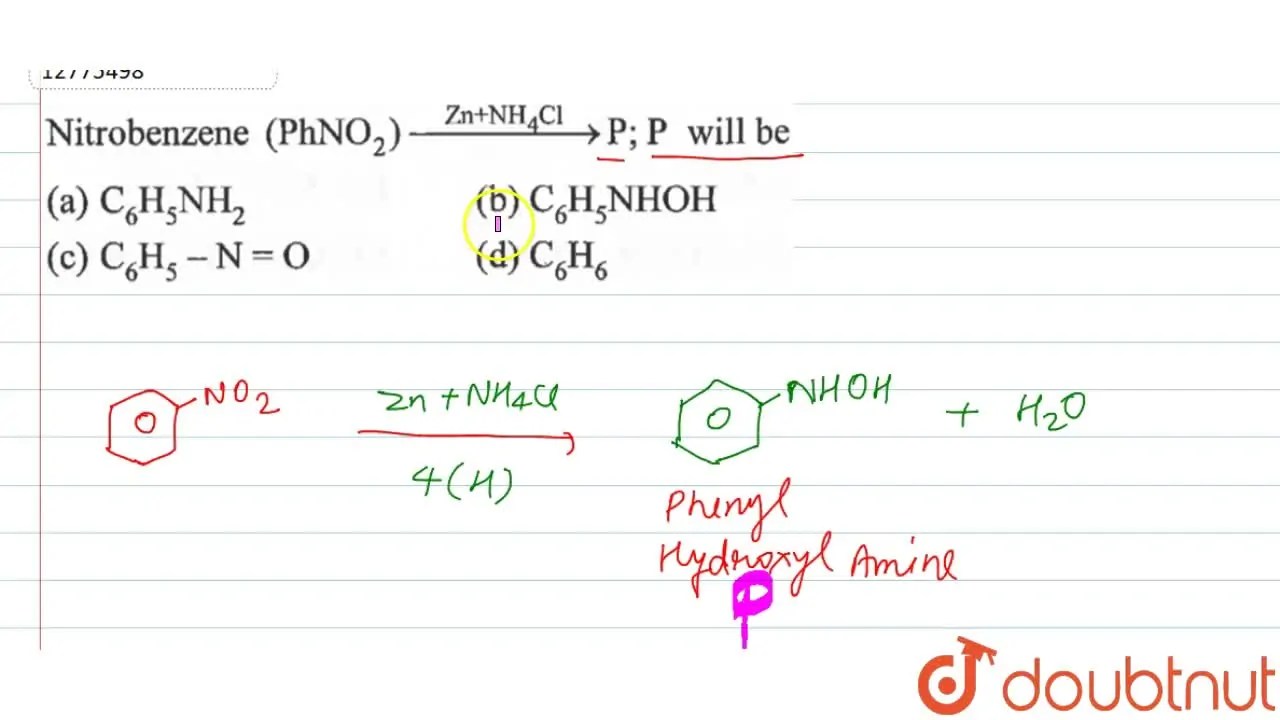 12775498
Nitrobenzene (PhNO₂) Zn+NH₄Cl → P; P will be
(a) C₆H₅NH₂ (b) C₆H₅NHOH
(c) C₆H₅ – N = O (d) C₆H₆
NO₂ Zn + NH₄Cl NHOH + H₂O
4(H)
Phenyl
Hydroxyl Amine
P
doubtnut